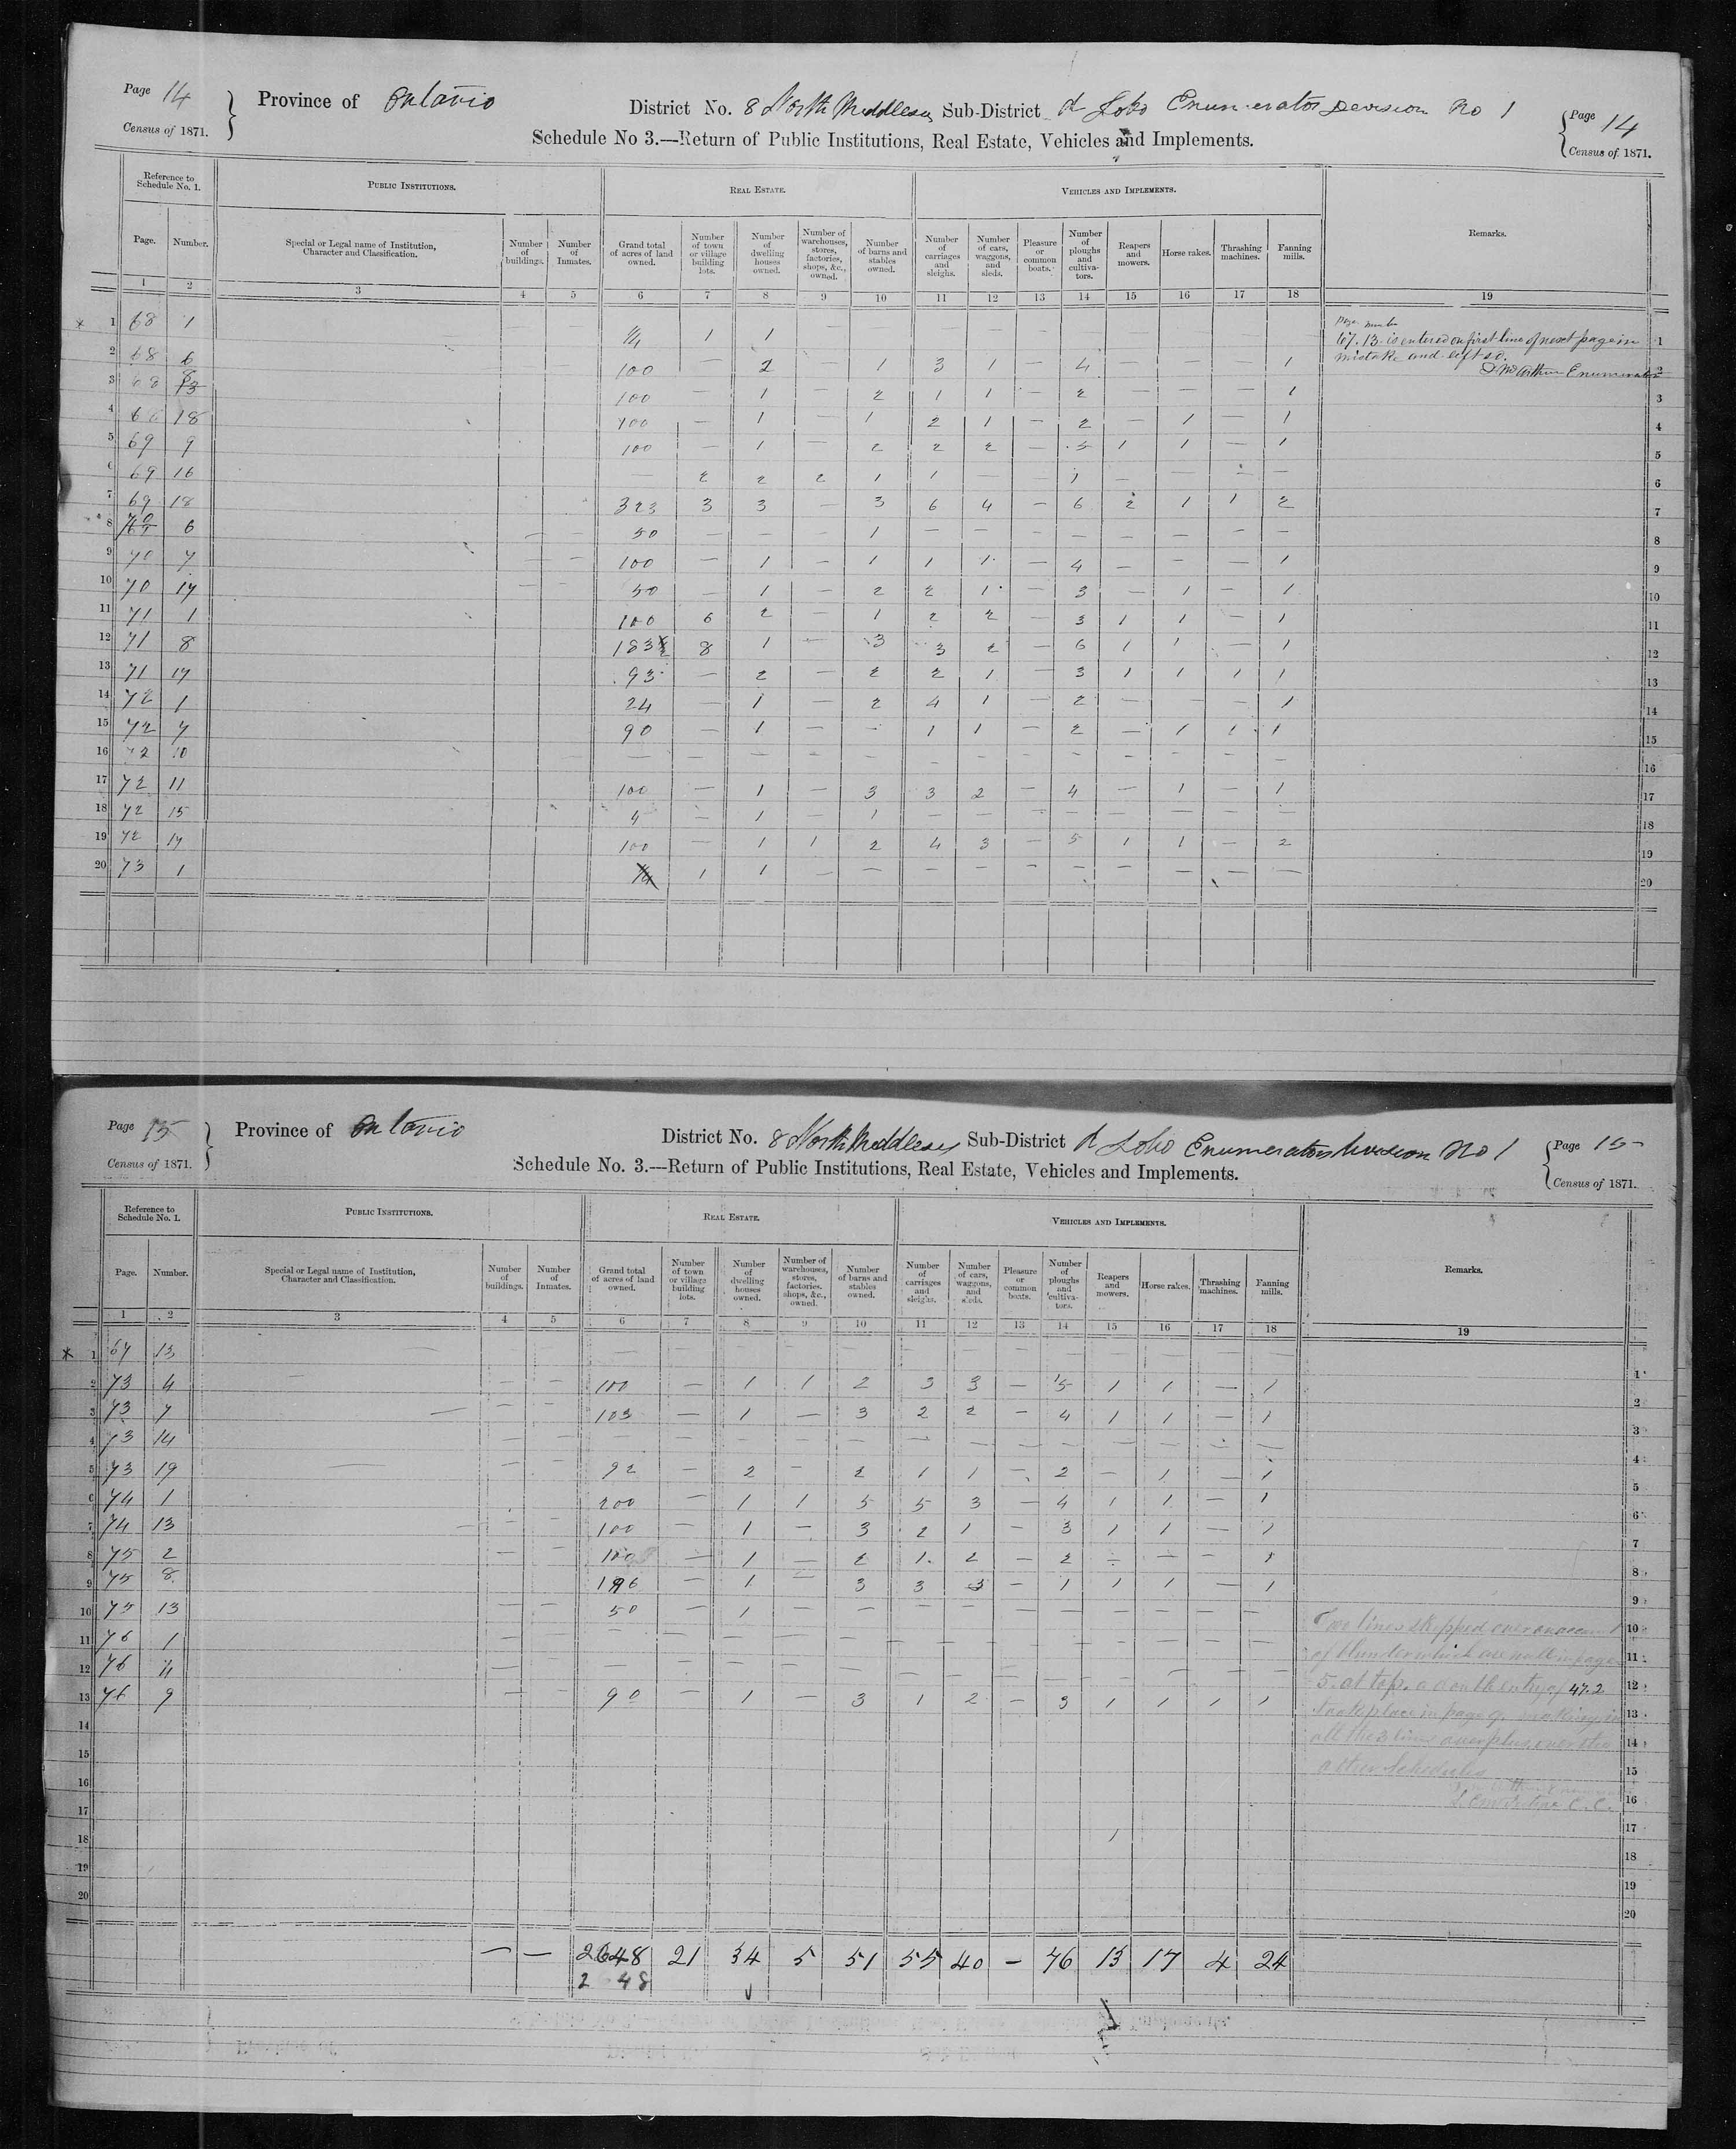 Page 14 Province of Ontario District No. 8 North Middlesex Sub-District d Lobo Enumerators Division No 1 Page 14
Census of 1871. Schedule No 3.—Return of Public Institutions, Real Estate, Vehicles and Implements. Census of 1871.
Reference to Schedule No. 1. Public Institutions. Real Estate. Vehicles and Implements. Remarks.
Page. Number. Special or Legal name of Institution, Character and Classification. Number of buildings. Number of Inmates. Grand total of acres of land owned. Number of town or village building lots. Number of dwelling houses owned. Number of warehouses, stores, factories, shops, &c., owned. Number of barns and stables owned. Number of carriages and sleighs. Number of cars, waggons, and sleds. Pleasure or common boats. Number of ploughs and cultivators. Reapers and mowers. Horse rakes. Thrashing machines. Fanning mills.
1 2 3 4 5 6 7 8 9 10 11 12 13 14 15 16 17 18 19
x 1 68 1 1/4 1 1 — — — — — — — — — — page number 1
67. 13. is entered on first line of next page in
mistake and left so.
D McArthur Enumerator
2 68 6 100 — 2 1 3 1 — 4 — — — 1 2
3 68 8 100 — 1 — 2 1 1 — 2 — — — 1 3
4 18 100 — 1 — 1 2 1 — 2 — 1 — 1 4
5 69 9 100 — 1 — 2 2 2 — 5 1 1 — 1 5
6 69 16 — 2 2 2 1 1 — — 1 — — — — 6
7 69 18 323 3 3 — 3 6 4 — 6 2 1 1 2 7
8 70 6 — — 50 — — — 1 — — — — — — — — 8
9 70 7 — — 100 — 1 — 1 1 1 — 4 — — — 1 9
10 70 17 — — 50 — 1 — 2 2 1 — 3 — 1 — 1 10
11 71 1 100 6 2 — 1 2 2 — 3 1 1 — 1 11
12 71 8 183 1/2 8 1 — 3 3 2 — 6 1 1 — 1 12
13 71 17 93 — 2 — 2 2 1 — 3 1 1 1 1 13
14 72 1 24 — 1 — 2 4 1 — 2 — — — 1 14
15 72 7 90 — 1 — — 1 1 — 2 — 1 1 1 15
16 72 10 — — — — — — — — — — — — — 16
17 72 11 100 — 1 — 3 3 2 — 4 — 1 — 1 17
18 72 15 4 — 1 — 1 — — — — — — — — 18
19 72 17 100 — 1 1 2 4 3 — 5 1 1 — 2 19
20 73 1 1/4 1 1 — — — — — — — — — — 20
Page 15 Province of Ontario District No. 8 North Middlesex Sub-District d Lobo Enumerators Division No 1 Page 15
Census of 1871. Schedule No. 3.—Return of Public Institutions, Real Estate, Vehicles and Implements. Census of 1871.
Reference to Schedule No. 1. Public Institutions. Real Estate. Vehicles and Implements. Remarks.
Page. Number. Special or Legal name of Institution, Character and Classification. Number of buildings. Number of Inmates. Grand total of acres of land owned. Number of town or village building lots. Number of dwelling houses owned. Number of warehouses, stores, factories, shops, &c., owned. Number of barns and stables owned. Number of carriages and sleighs. Number of cars, waggons, and sleds. Pleasure or common boats. Number of ploughs and cultivators. Reapers and mowers. Horse rakes. Thrashing machines. Fanning mills.
1 2 3 4 5 6 7 8 9 10 11 12 13 14 15 16 17 18 19
x 1 67 13 — — — — — — — — — — — — — — — — 1
2 73 4 — — — 100 — 1 1 2 3 3 — 5 1 1 — 1 2
3 73 7 — — — 103 — 1 — 3 2 2 — 4 1 1 — 1 3
4 73 14 — — — — — — — — — — — — — — — 4
5 73 19 — — — 92 — 2 — 2 1 1 — 2 — 1 — 1 5
6 74 1 200 — 1 1 5 5 3 — 4 1 1 — 1 6
7 74 13 — — — 100 — 1 — 3 2 1 — 3 1 1 — 1 7
8 75 2 — — 100 — 1 — 2 1 2 — 2 — — — 1 8
9 75 8 196 — 1 — 3 3 3 — 1 1 1 — 1 9
10 75 13 — — 50 — 1 — — — — — — — — — — Two lines skipped over on account 10
11 76 1 — — — — — — — — — — — — — — — of blunder which are null in page 11
12 76 — — — — — — — — — — — — — — — 5. at top. a double entry of 47.2 12
13 76 9 — — 90 — 1 — 3 1 2 — 3 1 1 1 1 took place in page 9. making in 13
14 all the 3 lines overplus over the 14
15 other Schedules 15
16 16
17 17
18 1 18
19 19
20 20
— — 2648 21 34 5 51 55 40 — 76 13 17 4 24
2 48